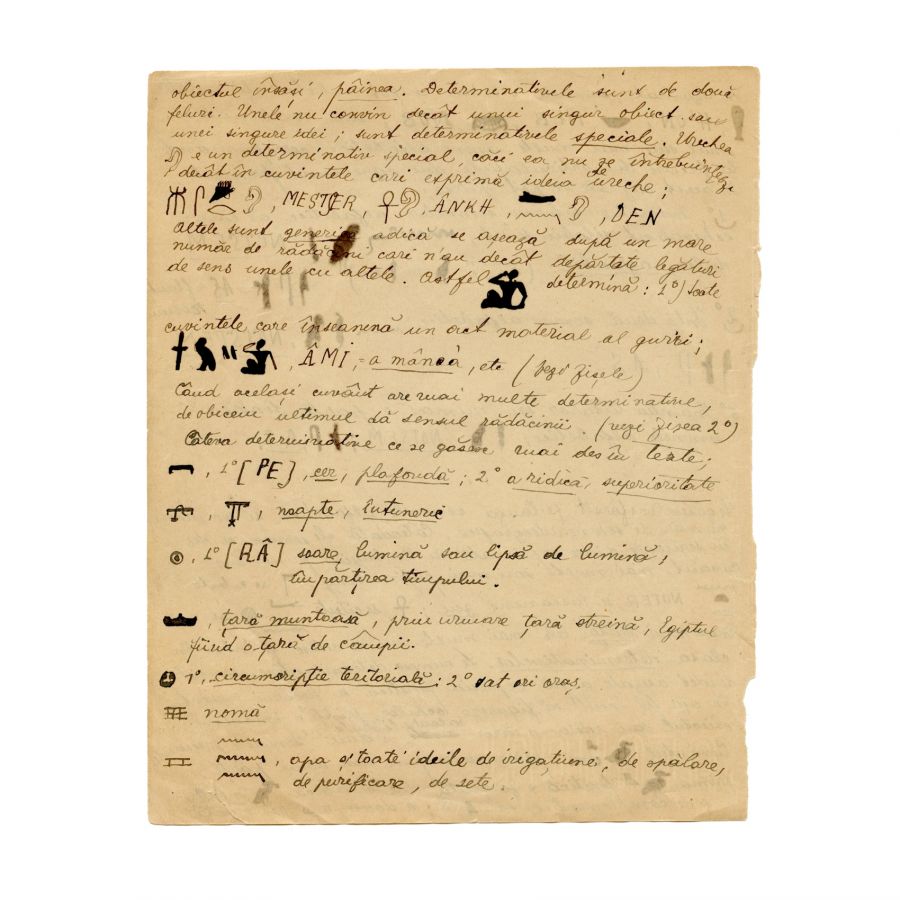 obiectul însăși, pâinea. Determinativele sunt de două
feluri. Unele nu convin decât unui singur obiect sau
unei singure idei; sunt determinativele speciale. Urechea
e un determinativ special, căci ea nu se întrebuințează
decât în cuvintele cari exprimă ideia de ureche;
, MESTJER, , ÂNKH, , DEN
Altele sunt generice adică se așează după un mare
număr de rădăcini cari n'au decât depărtate legături
de sens unele cu altele. Astfel determină: 1º) toate
cuvintele care înseamnă un act material al gurii;
, ÂMI, = a mâncà, etc (vezi zisele)
Când același cuvânt are mai multe determinative,
de obiceiu ultimul dă sensul rădăcinii. (vezi zisea 2º)
Câteva determinative ce se găsesc mai des în texte;
, 1º [PE], cer, plafondă; 2º a ridica, superioritate
, , noapte, întuneric
, 1º [RÂ] soare, lumină sau lipsă de lumină,
împărțirea timpului.
, țară muntoasă, prin urmare țară streină, Egiptul
fiind o țară de câmpii.
1º, circumscripție teritorială; 2º sat ori oraș.
nomă
, apa și toate ideile de irigațiune, de spălare,
de purificare, de sete.